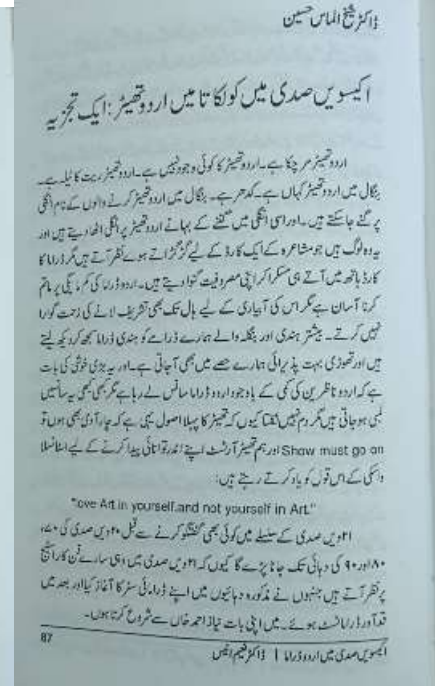 ڈاکٹر شیخ الماس حسین
اکیسویں صدی میں کولکاتا میں اردو تھیٹر: ایک تجزیہ
اردو تھیٹر مر چکا ہے۔ اردو تھیٹر کا کوئی وجود نہیں ہے۔ اردو تھیٹر ریت کا ٹیلہ ہے۔
بنگال میں اردو تھیٹر کہاں ہے۔ کدھر ہے۔ بنگال میں اردو تھیٹر کرنے والوں کے نام انگلی
پر گنے جا سکتے ہیں۔ اور اسی انگلی میں گننے کے بہانے اردو تھیٹر پر انگلی اٹھا دیتے ہیں اور
یہ وہ لوگ ہیں جو مشاعرہ کے ایک کارڈ کے لیے گڑگڑاتے ہوے نظر آتے ہیں مگر ڈراما کا
کارڈ ہاتھ میں آتے ہی مسکرا کر اپنی مصروفیت گنوا دیتے ہیں۔ اردو ڈراما کی کم مائیگی پر ماتم
کرنا آسان ہے مگر اس کی آبیاری کے لیے ہال تک بھی تشریف لانے کی زحمت گوارا
نہیں کرتے۔ بیشتر ہندی اور بنگلہ والے ہمارے ڈرامے کو ہندی ڈراما سمجھ کر دیکھ لیتے
ہیں اور تھوڑی بہت پذیرائی ہمارے حصے میں بھی آ جاتی ہے۔ اور یہ بڑی خوشی کی بات
ہے کہ اردو ناظرین کی کمی کے باوجود اردو ڈراما سانس لے رہا ہے مگر کبھی کبھی یہ سانسیں
لمبی ہو جاتی ہیں مگر دم نہیں نکلتا کیوں کہ تھیٹر کا پہلا اصول یہی ہے کہ چار آدمی بھی ہوں تو
Show must go on اور ہم تھیٹر آرٹسٹ اپنے اندر توانائی پیدا کرنے کے لیے اسٹانسلا
وسکی کے اس قول کو یاد کرتے رہتے ہیں:
"love Art in yourself.and not yourself in Art."
۲۱ویں صدی کے سلسلے میں کوئی بھی گفتگو کرنے سے قبل ۲۰ویں صدی کی ۷۰،
۸۰ اور ۹۰ کی دہائی تک جانا پڑے گا کیوں کہ ۲۱ویں صدی میں وہی سارے فن کار اسٹیج
پر نظر آتے ہیں جنہوں نے مذکورہ دہائیوں میں اپنے ڈرامائی سفر کا آغاز کیا اور بعد میں
قد آور ڈراماٹسٹ ہوئے۔ میں اپنی بات نیاز احمد خاں سے شروع کرتا ہوں۔
اکیسویں صدی میں اردو ڈراما | ڈاکٹر نعیم انیس 87